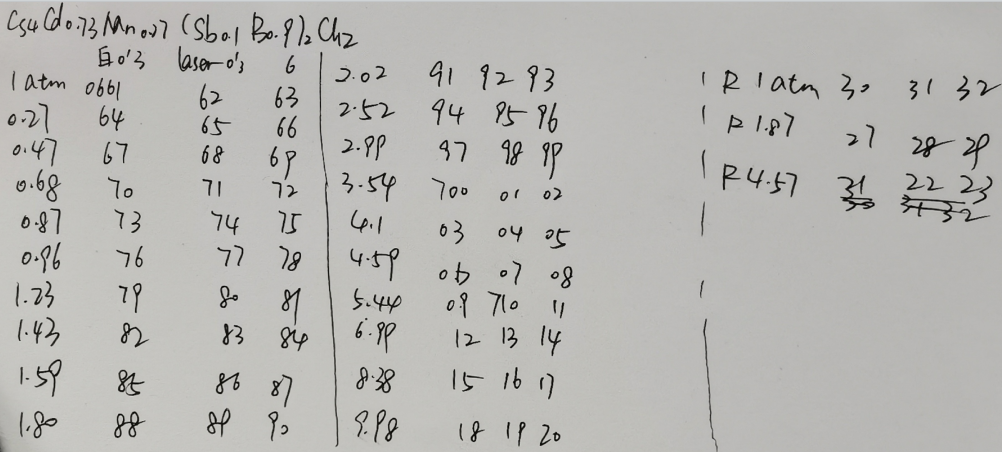 Cs4Cd0.73Mn0.27(Sb0.1B0.9)2Ch2
自0'3 laser-0's 6
1 atm 0661 62 63
0.27 64 65 66
0.47 67 68 69
0.68 70 71 72
0.87 73 74 75
0.96 76 77 78
1.23 79 80 81
1.43 82 83 84
1.59 85 86 87
1.80 88 89 90
2.02 91 92 93
2.52 94 95 96
2.99 97 98 99
3.54 700 01 02
4.1 03 04 05
4.59 06 07 08
5.44 09 710 11
6.99 12 13 14
8.38 15 16 17
9.98 18 19 20
R 1 atm 30 31 32
R 1.87 27 28 29
R 4.57 31 22 23
30 31 32